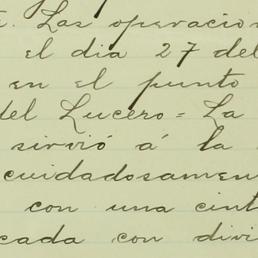 . Las operacio
el dia 27 del
en el punto
del Lucero = La
sirvió á la
cuidadosamen
con una cint
cada con divi